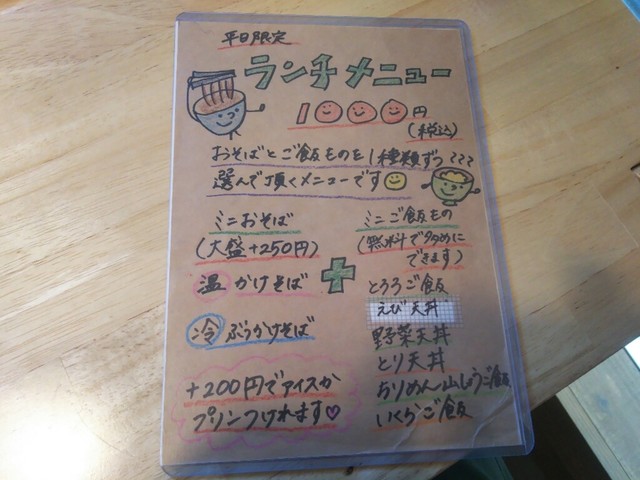 平日限定
ランチメニュー
1000円
(税込)
おそばとご飯ものを1種類ずつ
選んで頂くメニューです
ミニおそば
(大盛+250円)
温 かけそば
冷 ぶっかけそば
+200円でアイスか
プリンつけれます♡
+
ミニご飯もの
(無料で多めに
できます)
とろろご飯
えび天丼
野菜天丼
とり天丼
ちりめん山しょうご飯
いくらご飯